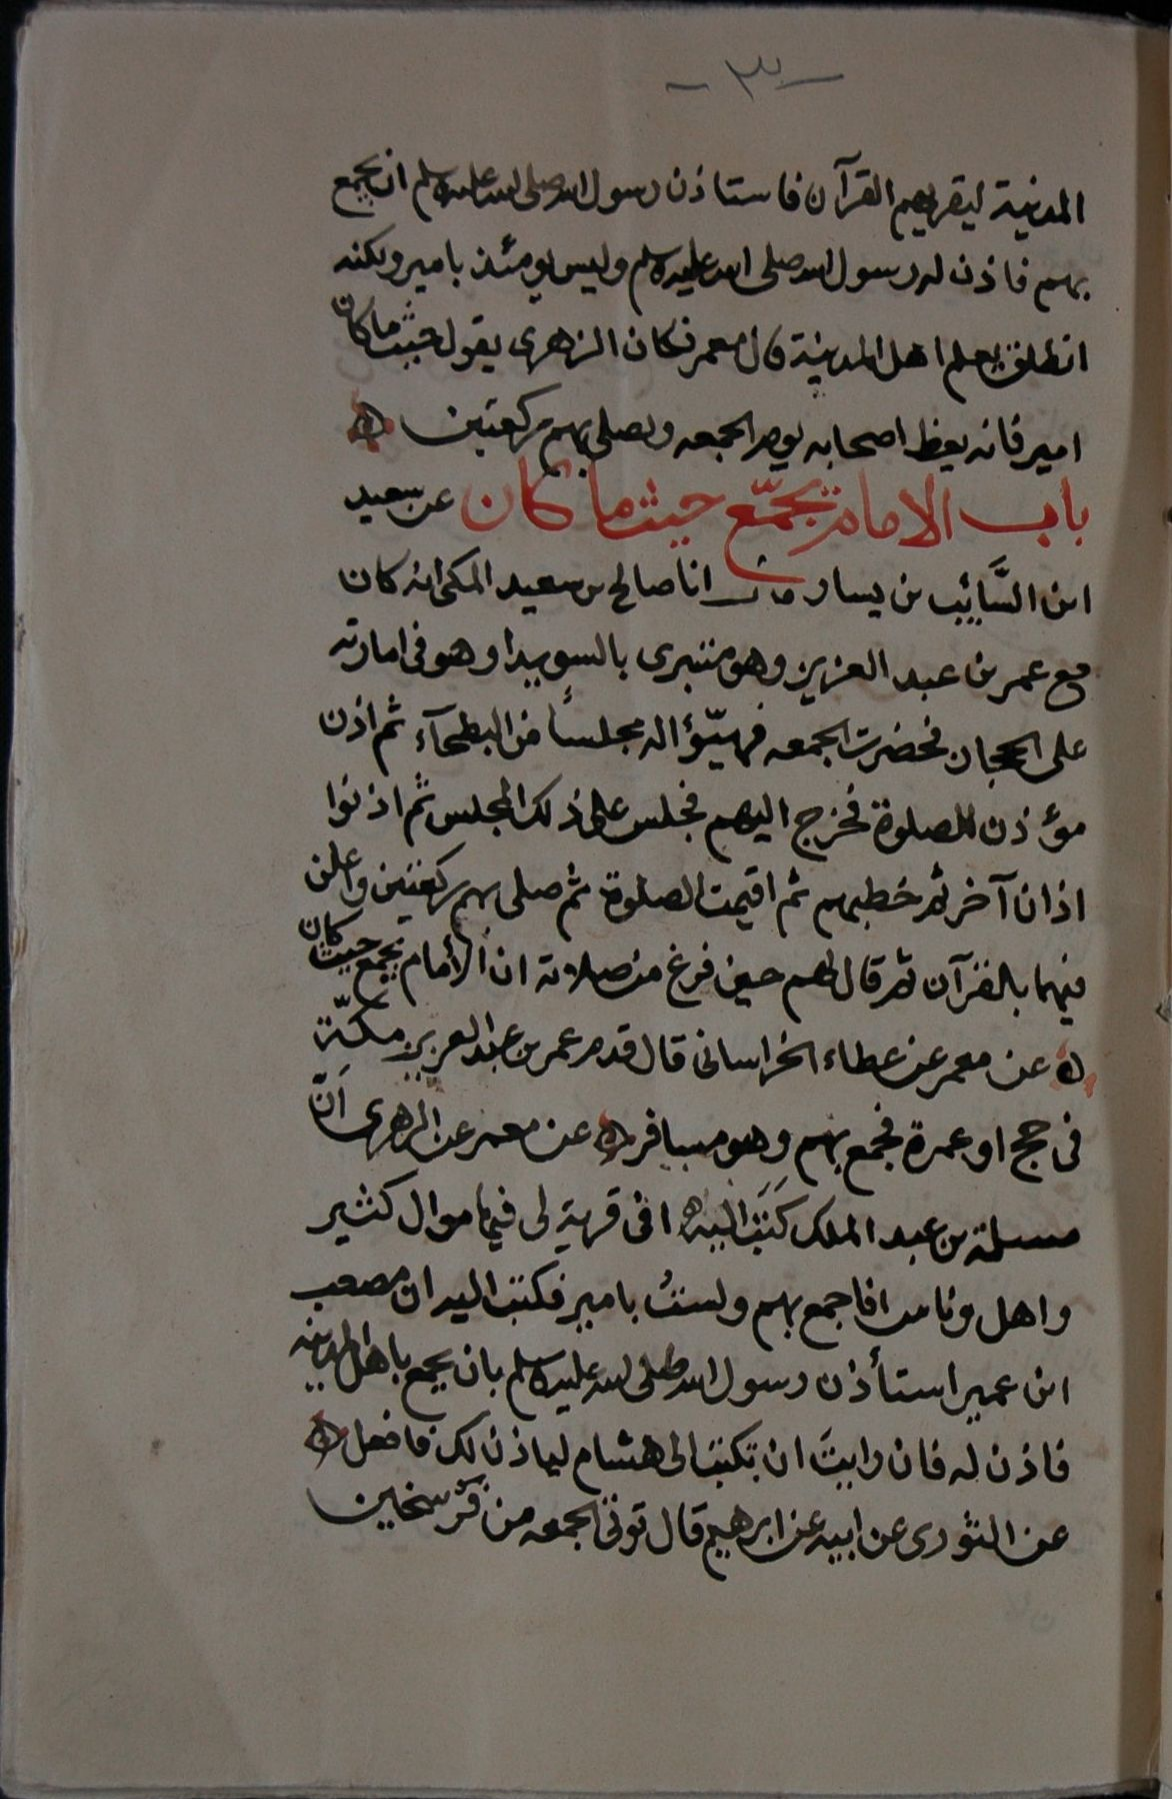 المدينة ليقريهم القرآن فاستاذن رسول الله صلى الله عليه وسلم ان يجمع
بهم فاذن له رسول الله صلى الله عليه وسلم وليس يومئذ بامير ولكنه
انطلق يعلم اهل المدينة قال معمر فكان الزهرى يقول حيث ما كان
امير فانه يعظ اصحابه يوم الجمعه ويصلى بهم ركعتين
باب الامام يجمّع حيث ما كان عن سعيد
ابن السَّائِب بن يسار قال انا صالح بن سعيد المكى انه كان
مع عمر بن عبد العزيز وهو متبدى بالسويدا وهو فى امارته
على الحجاز فحضرت الجمعه فهيّؤا له مجلساً من البطحآء ثم اذن
مؤذن للصلوة فخرج اليهم فجلس على ذلك المجلس ثم اذنوا
اذانا آخر ثم خطبهم ثم اقيمت الصلوة ثم صلى بهم ركعتين واعلن
فيهما بالقرآن ثم قال لهم حين فرغ من صلاته ان الأمام يجمع حيث كان
عن معمر عن عطاء الخراسانى قال قدم عمر بن عبد العزيز مكّة
فى حج او عمرة فجمع بهم وهو مسافر عن معمر عن الزهرى اَنّ
مسلمة بن عبد الملك كَتَبَ اليه انى قرية لى فيها موال كثير
واهل وناس افاجمع بهم ولستُ بامير فكتب اليه ان مصعب
ابن عمير استأذن رسول الله صلى الله عليه وسلم بان يجمع باهل المدينه
فاذن له فان رايتَ ان تكتب الى هشام لياذن لك فافعل
عن الثورى عن ابيه عن ابرهيم قال توتى الجمعه من فرسخين